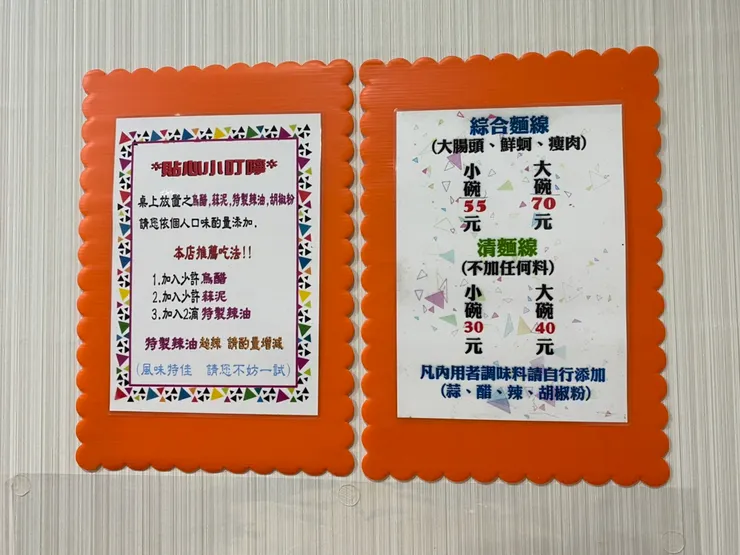 *貼心小叮嚀*
桌上放置之烏醋,蒜泥,特製辣油,胡椒粉
請您依個人口味酌量添加.
本店推薦吃法!!
1.加入少許烏醋
2.加入少許蒜泥
3.加入2滴特製辣油
特製辣油超辣 請酌量增減
(風味特佳 請您不妨一試)
綜合麵線
(大腸頭、鮮蚵、瘦肉)
小碗55元
大碗70元
清麵線
(不加任何料)
小碗30元
大碗40元
凡內用者調味料請自行添加
(蒜、醋、辣、胡椒粉)